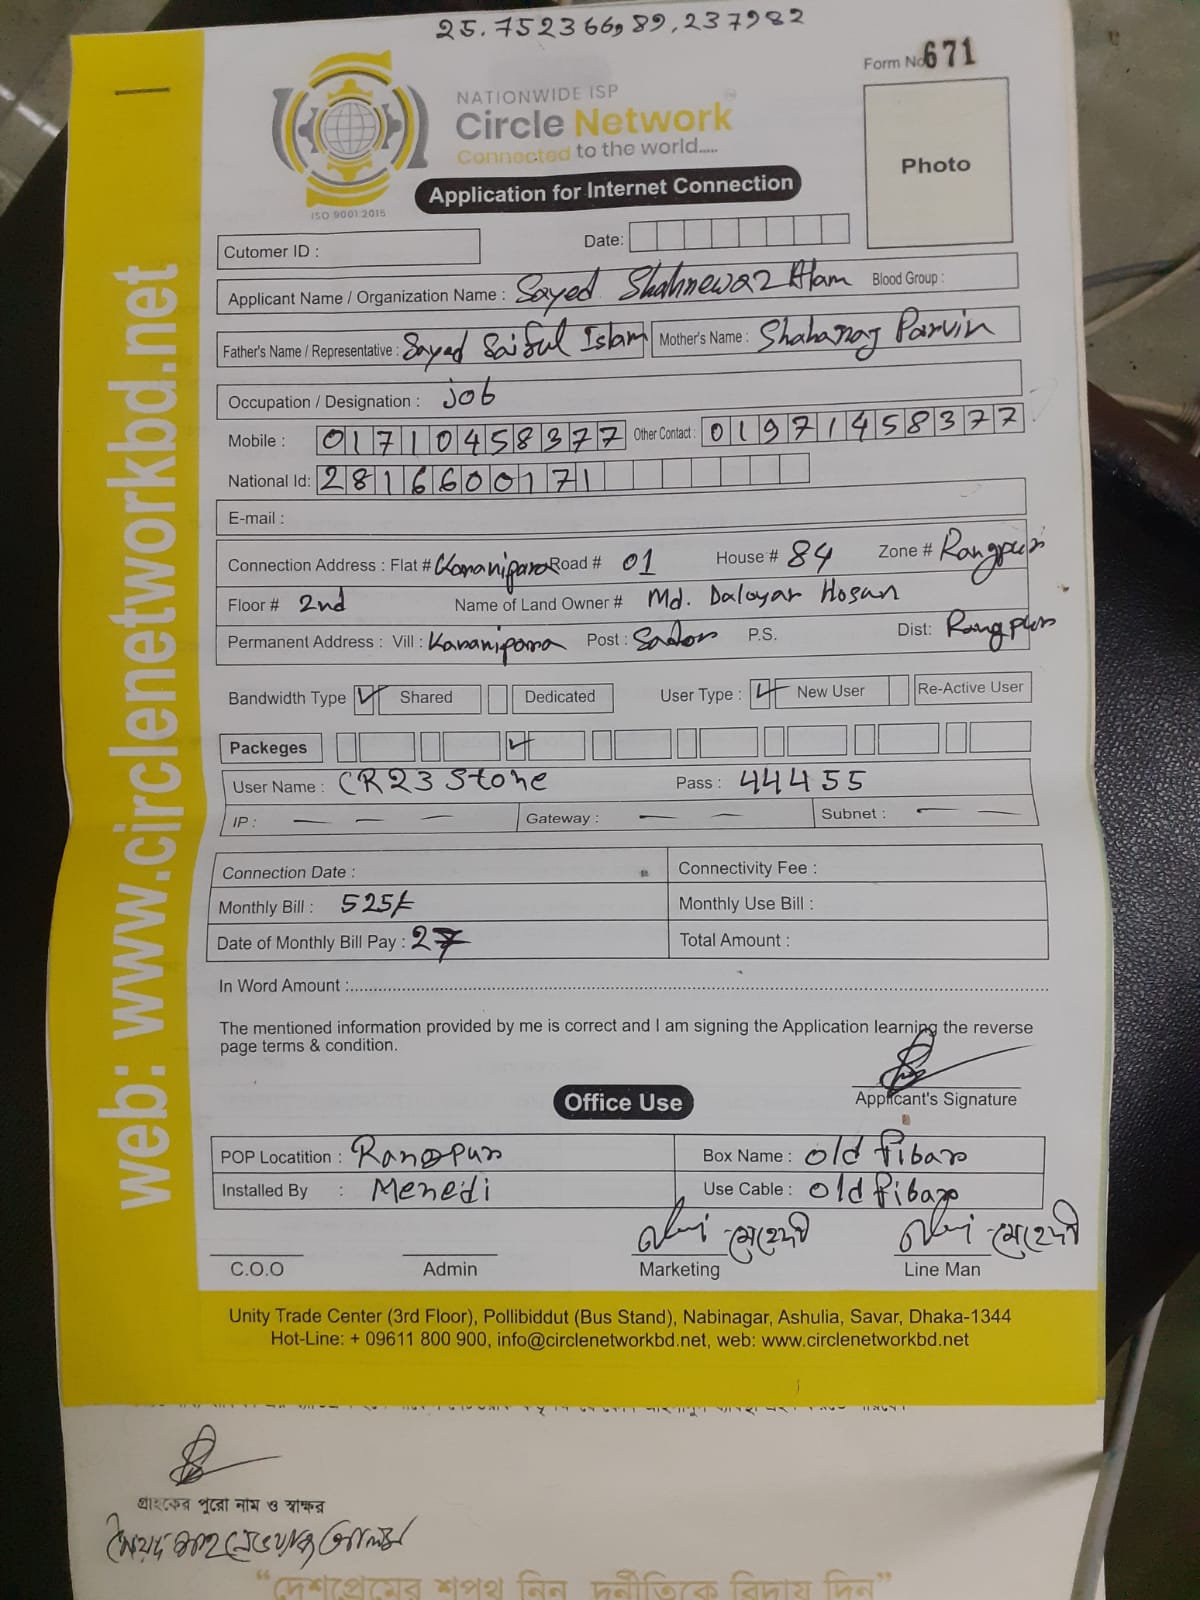 25.752366,89.237982
Form No 671
NATIONWIDE ISP
Circle Network
Connected to the world.....
ISO 9001:2015
Photo
Application for Internet Connection
Cutomer ID :
Date:
Applicant Name / Organization Name : Sayed Shahnewaz Alam Blood Group :
Father's Name / Representative : Sayed Saiful Islam Mother's Name : Shahanaj Parvin
Occupation / Designation : job
Mobile : 01710458377 Other Contact : 01971458377
National Id: 2816600171
E-mail :
Connection Address : Flat # Kamanipara Road # 01 House # 84 Zone # Rangpur
Floor # 2nd Name of Land Owner # Md. Daloyar Hosan
Permanent Address : Vill : Post : Sador P.S. Dist: Rangpur
Bandwidth Type Shared Dedicated User Type : New User Re-Active User
Packeges
User Name : CR23 Stone Pass : 44455
IP : — — — Gateway : — — Subnet : —
Connection Date : Connectivity Fee :
Monthly Bill : 525/= Monthly Use Bill :
Date of Monthly Bill Pay : 27 Total Amount :
In Word Amount :
The mentioned information provided by me is correct and I am signing the Application learning the reverse
page terms & condition.
Applicant's Signature
Office Use
POP Locatition : Rangpur Box Name : old fibar
Installed By : Menedi Use Cable : old fibar
মেহেদী মেহেদী
C.O.O Admin Marketing Line Man
Unity Trade Center (3rd Floor), Pollibiddut (Bus Stand), Nabinagar, Ashulia, Savar, Dhaka-1344
Hot-Line: + 09611 800 900, info@circlenetworkbd.net, web: www.circlenetworkbd.net
web: www.circlenetworkbd.net
গ্রাহকের পুরো নাম ও স্বাক্ষর
সৈয়দ শাহনেওয়াজ আলম
“দেশপ্রেমের শপথ নিন, দুর্নীতিকে বিদায় দিন”